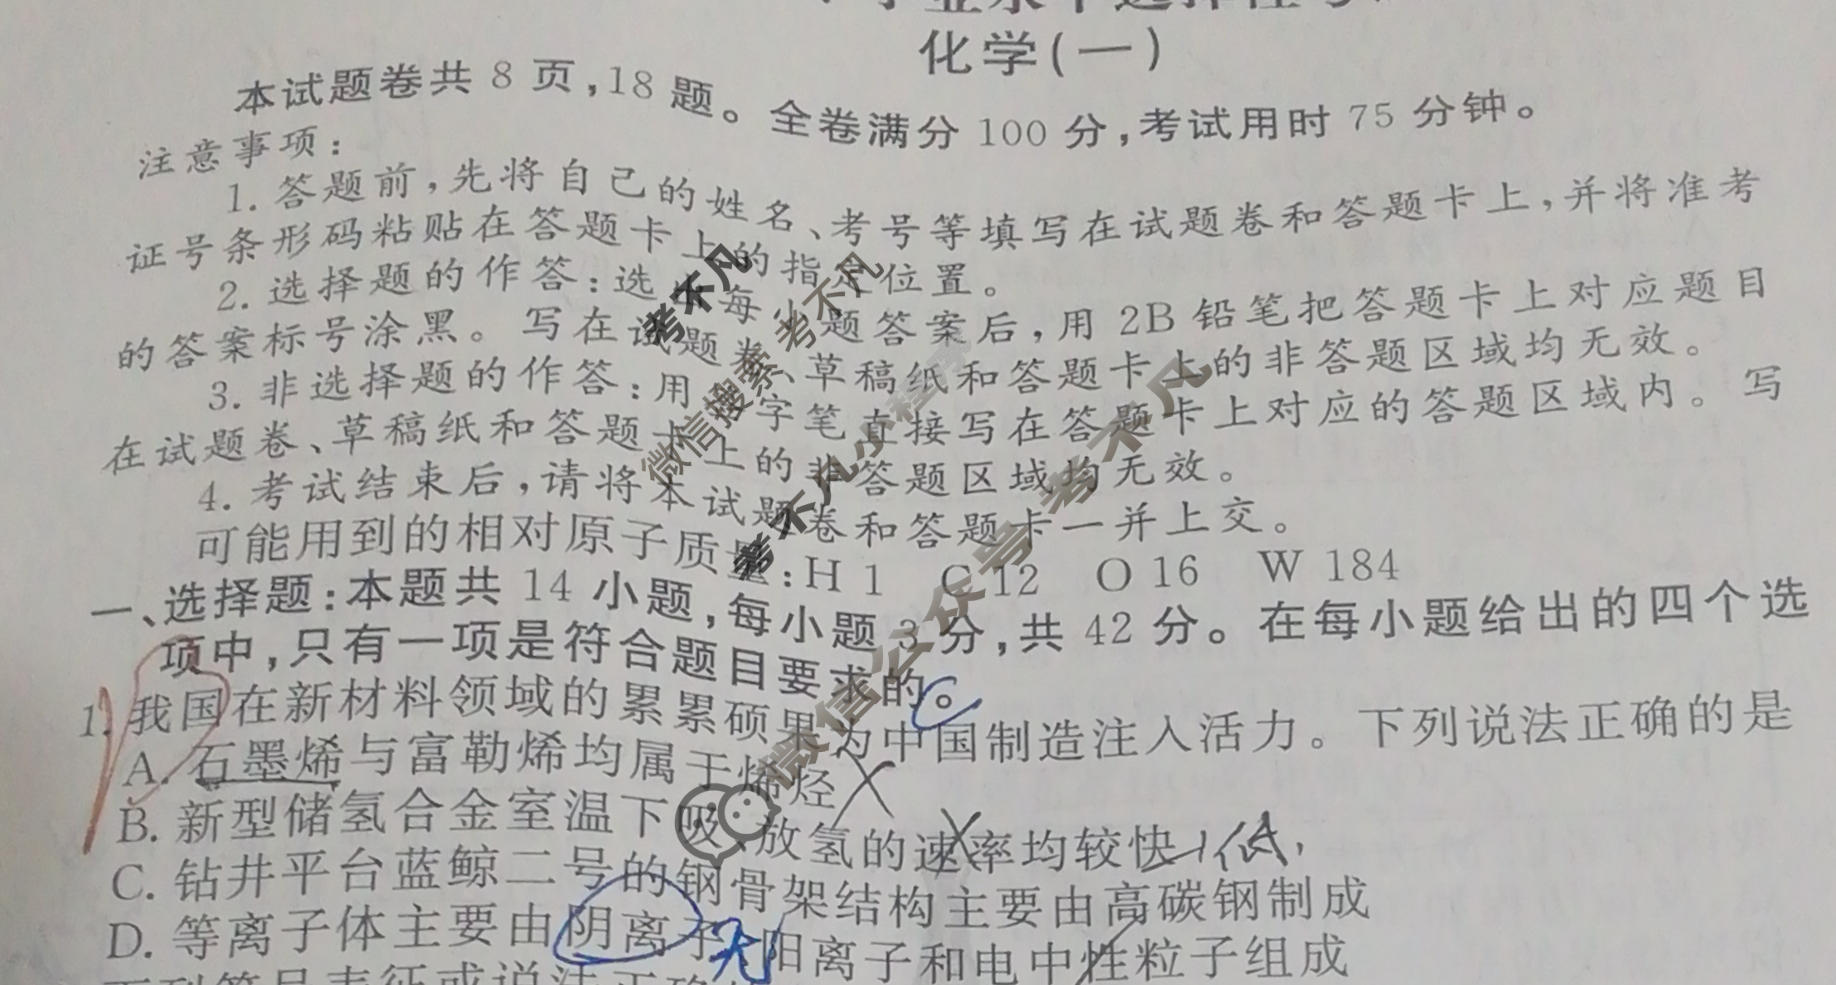 化学(一)
本试题卷共 8 页,18 题。全卷满分 100 分,考试用时 75 分钟。
注意事项:
1. 答题前,先将自己的姓名、考号等填写在试题卷和答题卡上,并将准考
证号条形码粘贴在答题卡上的指定位置。
2. 选择题的作答:选出每小题答案后,用 2B 铅笔把答题卡上对应题目
的答案标号涂黑。写在试题卷、草稿纸和答题卡上的非答题区域均无效。
3. 非选择题的作答:用 字笔直接写在答题卡上对应的答题区域内。写
在试题卷、草稿纸和答题卡上的非答题区域均无效。
4. 考试结束后,请将本试题卷和答题卡一并上交。
可能用到的相对原子质量:H 1 C 12 O 16 W 184
一、选择题:本题共 14 小题,每小题 3 分,共 42 分。在每小题给出的四个选
项中,只有一项是符合题目要求的。
1. 我国在新材料领域的累累硕果为中国制造注入活力。下列说法正确的是
A. 石墨烯与富勒烯均属于烯烃
B. 新型储氢合金室温下吸、放氢的速率均较快
C. 钻井平台蓝鲸二号的钢骨架结构主要由高碳钢制成
D. 等离子体主要由阴离子、阳离子和电中性粒子组成
考不凡
微信搜索 考不凡
考不凡小程序
微信公众号 考不凡